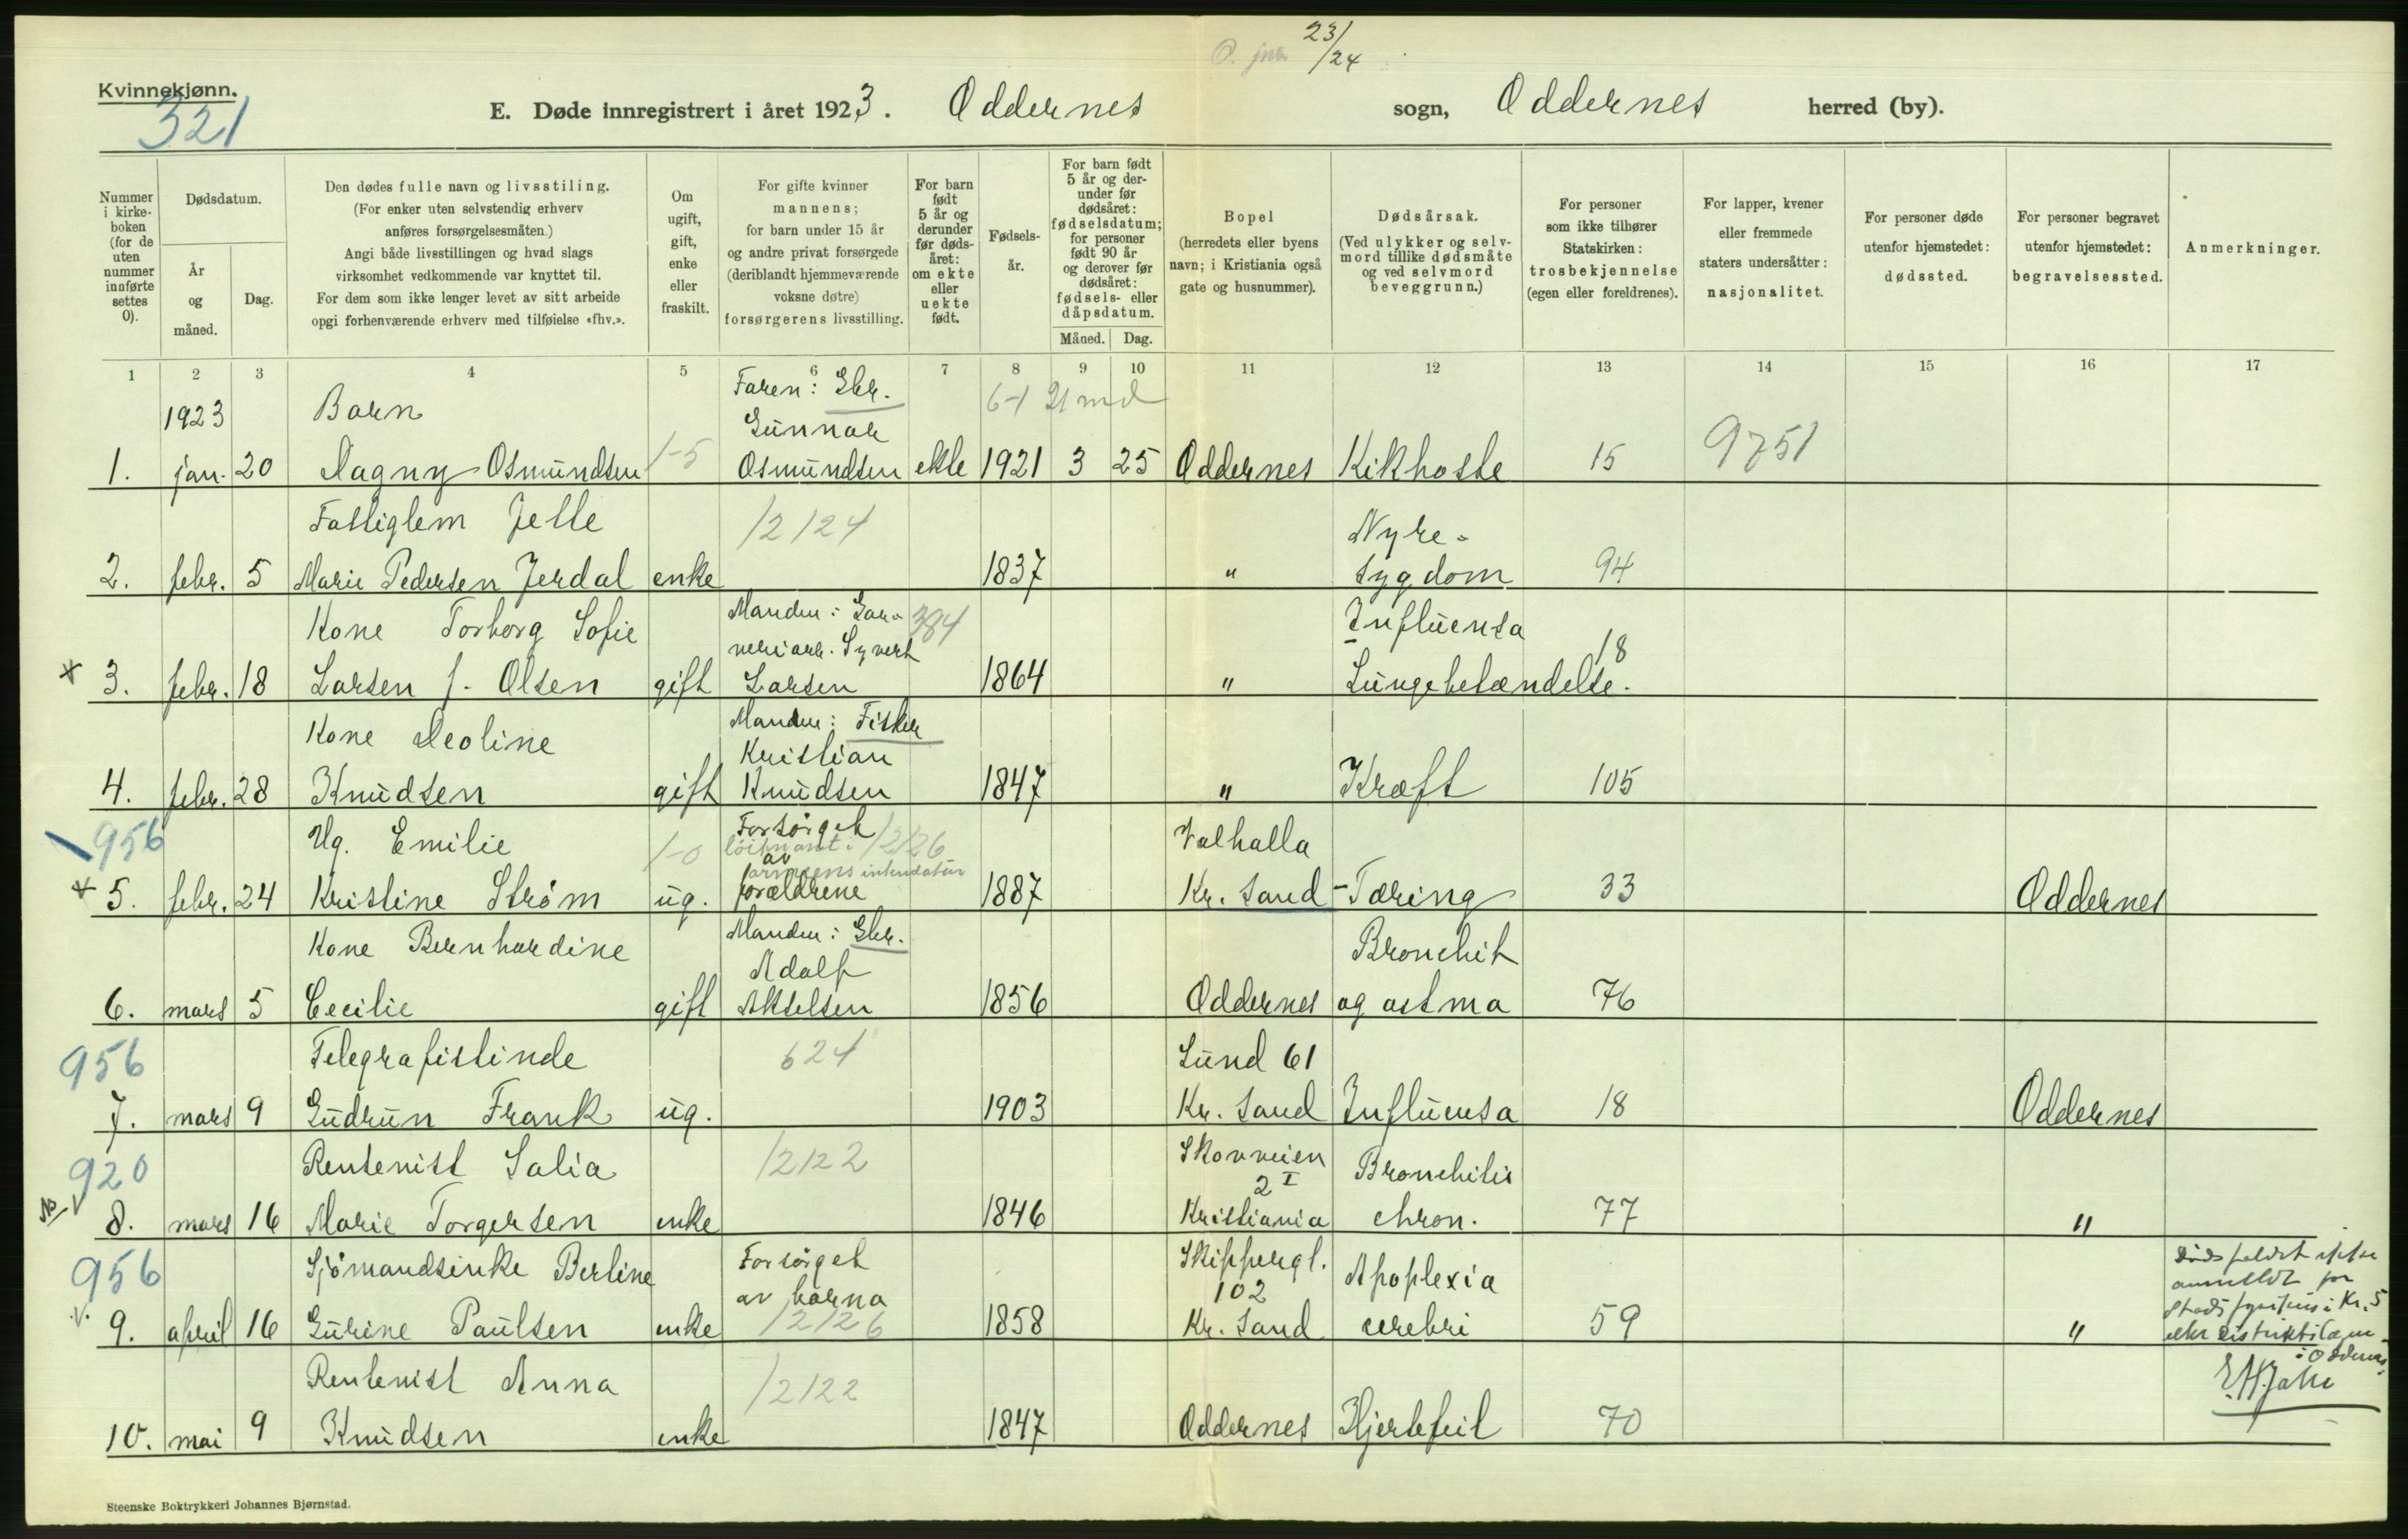 23/24
Kvinnekjønn.
321
E. Døde innregistrert i året 1923. Oddernes sogn, Oddernes herred (by).
Nummer i kirkeboken (for de uten nummer innførte settes 0).
Dødsdatum.
År og måned.
Dag.
Den dødes fulle navn og livsstiling.
(For enker uten selvstendig erhverv
anføres forsørgelsesmåten.)
Angi både livsstillingen og hvad slags
virksomhet vedkommende var knyttet til.
For dem som ikke lenger levet av sitt arbeide
opgi forhenværende erhverv med tilføielse «fhv.».
Om ugift, gift, enke eller fraskilt.
For gifte kvinner
mannens;
for barn under 15 år
og andre privat forsørgede
(deriblandt hjemmeværende
voksne døtre)
forsørgerens livsstilling.
For barn født 5 år og derunder før dødsåret: om ekte eller uekte født.
Fødselsår.
For barn født 5 år og derunder før dødsåret: fødselsdatum; for personer født 90 år og derover før dødsåret: fødsels- eller dåpsdatum.
Måned. Dag.
Bopel
(herredets eller byens
navn; i Kristiania også
gate og husnummer).
Dødsårsak.
(Ved ulykker og selvmord tillike dødsmåte
og ved selvmord
beveggrunn.)
For personer
som ikke tilhører
Statskirken:
trosbekjennelse
(egen eller foreldrenes).
For lapper, kvener
eller fremmede
staters undersåtter:
nasjonalitet.
For personer døde
utenfor hjemstedet:
dødssted.
For personer begravet
utenfor hjemstedet:
begravelsessted.
Anmerkninger.
1 2 3 4 5 6 7 8 9 10 11 12 13 14 15 16 17
1923 Barn Faren: Gbr. 6-1 21 md
Gunnar
1. jan. 20 Dagny Osmundsen 1-5 Osmundsen ekte 1921 3 25 Oddernes Kikhoste 15 9751
Fattiglem Jelle 12124 Nyre-
2. febr. 5 Marie Pedersen Jerdal enke 1837 " sygdom 94
Kone Torborg Sofie Manden: Gar- 384 Influensa
veriarb. Syvert 18
3. febr. 18 Larsen f. Olsen gift Larsen 1864 " Lungebetændelse.
Kone Deoline Manden: Fisker
Kristian
4. febr. 28 Knudsen gift Knudsen 1847 " Kræft 105
956 Ug. Emilie 1-0 Forsørget 12126 Valhalla
løitnant i
av
armeens intendatur
5. febr. 24 Kristine Strøm ug. forældrene 1887 Kr. Sand - Tæring 33 Oddernes
Kone Bernhardine Manden: Gbr. Bronchit
Adolf
6. mars 5 Cecilie gift Akselsen 1856 Oddernes og astma 76
956 Telegrafistinde 624 Lund 61
7. mars 9 Gudrun Frank ug. 1903 Kr. Sand Influensa 18 Oddernes
920 Rentenist Salia 12122 Skovveien Bronchitis
2 I
8. mars 16 Marie Torgersen enke 1846 Kristiania chron. 77 "
956 Sjømandsenke Berline Forsørget Skippergt. Apoplexia
av barna 102
9. april 16 Gurine Paulsen enke 12126 1858 Kr. Sand cerebri 59 "
Dødsfaldet ikke
anmeldt for
i Kr. S
eller distriktslægen
i Oddernes.
Rentenist Anna 12122
10. mai 9 Knudsen enke 1847 Oddernes Hjertefeil 70
Steenske Boktrykkeri Johannes Bjørnstad.